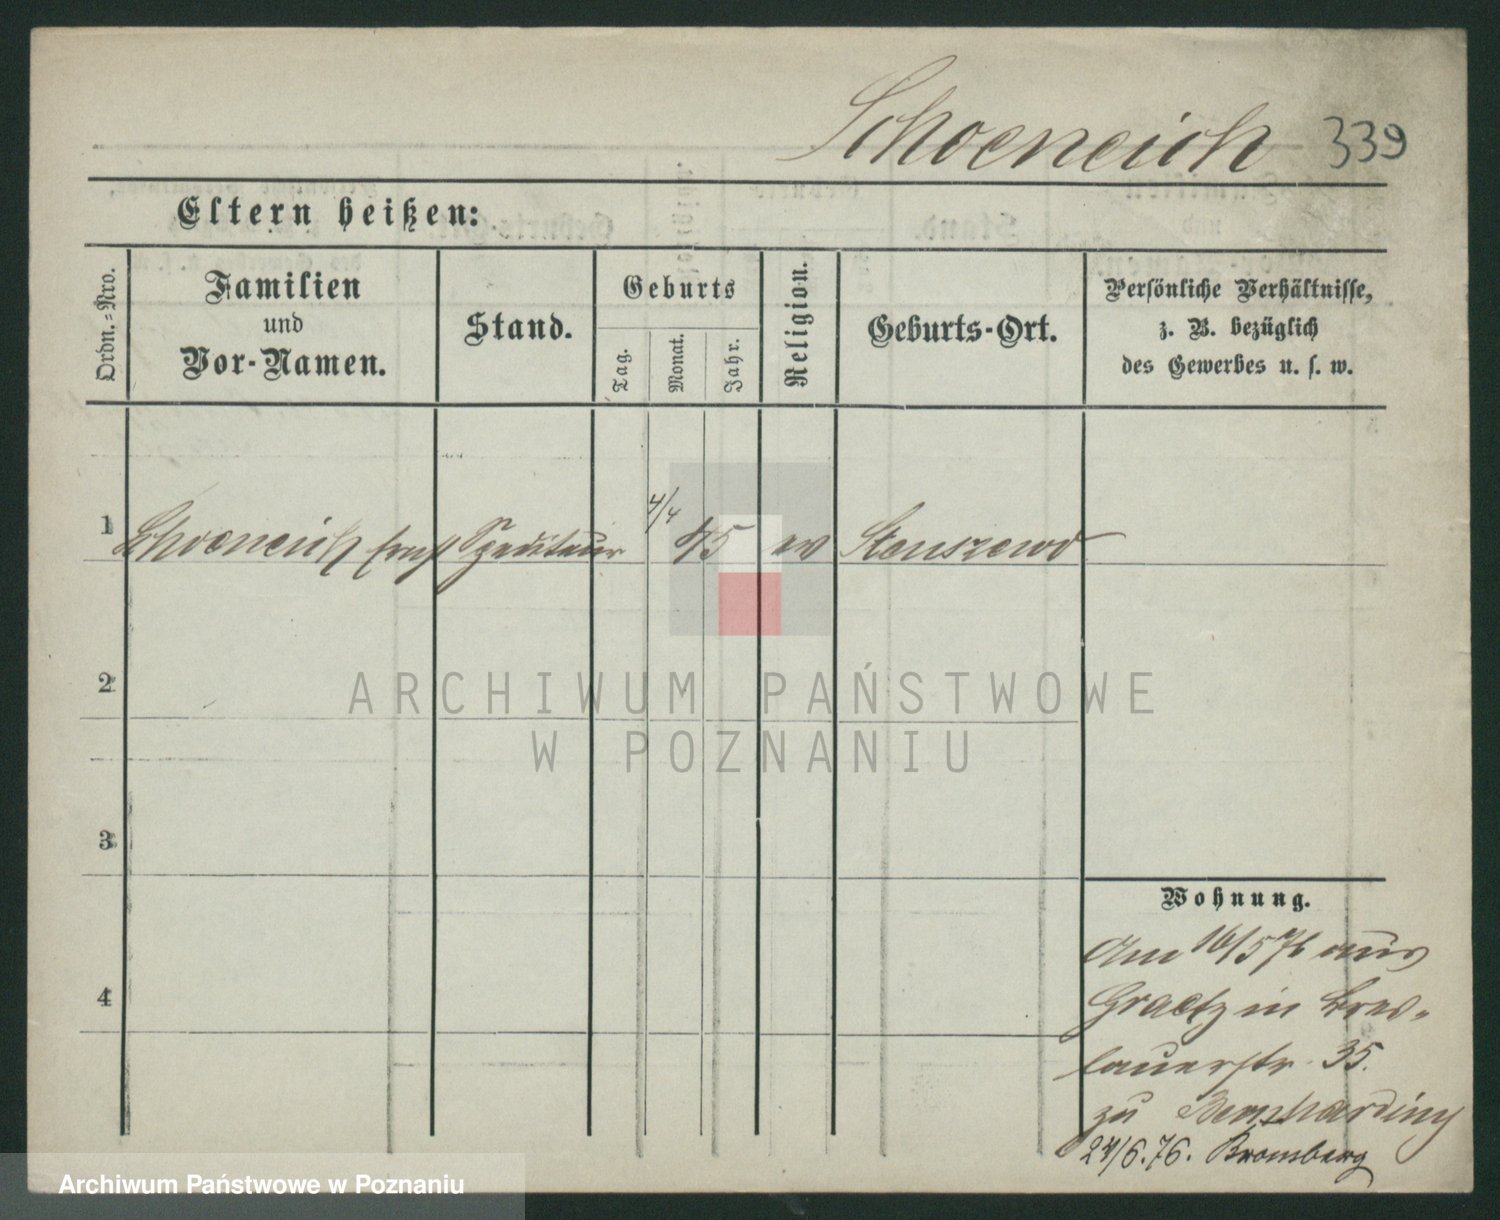 Schoeneich 339
Eltern heißen:
Ordn.-Nro.
Familien
und
Vor-Namen.
Stand.
Geburts
Tag.
Monat.
Jahr.
Religion.
Geburts-Ort.
Persönliche Verhältnisse,
z. B. bezüglich
des Gewerbes u. s. w.
1 Schoeneich Ernst Spediteur 4/4 45 ev Stenszewo
2
3
4
Wohnung.
Am 16/5 76 aus
Graetz in Bres-
lauerstr. 35.
zu
24/6.76. Bromberg
ARCHIWUM PAŃSTWOWE
W POZNANIU
Archiwum Państwowe w Poznaniu